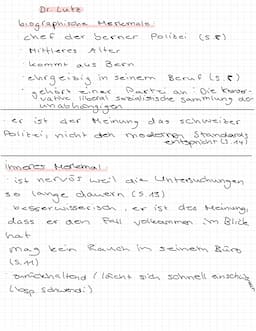 Dr. Lutz
biographische Merkmale:
· chef der berner Polizei (S.5)
· Mittleres Alter
· kommt aus Bern
· ehrgeizig in seinem Beruf (S.5)
· gehört einer Partei an: Die konser-
vative liberal sozialistische sammlung der
unabhängigen
· er ist der Meinung das schweizer
Polizei, nicht den modernen Standards
entspricht (S.14)
inneres Merkmal
· ist nervös weil die Untersuchungen
so lange dauern (S.13)
besserwisserisch, er ist des Meinung,
dass er den Fall vollkommen im Blick
hat
mag kein Rauch in seinem Büro
(S.11)
· zurückhaltend / lässt sich schnell
(bsp Schwendi)